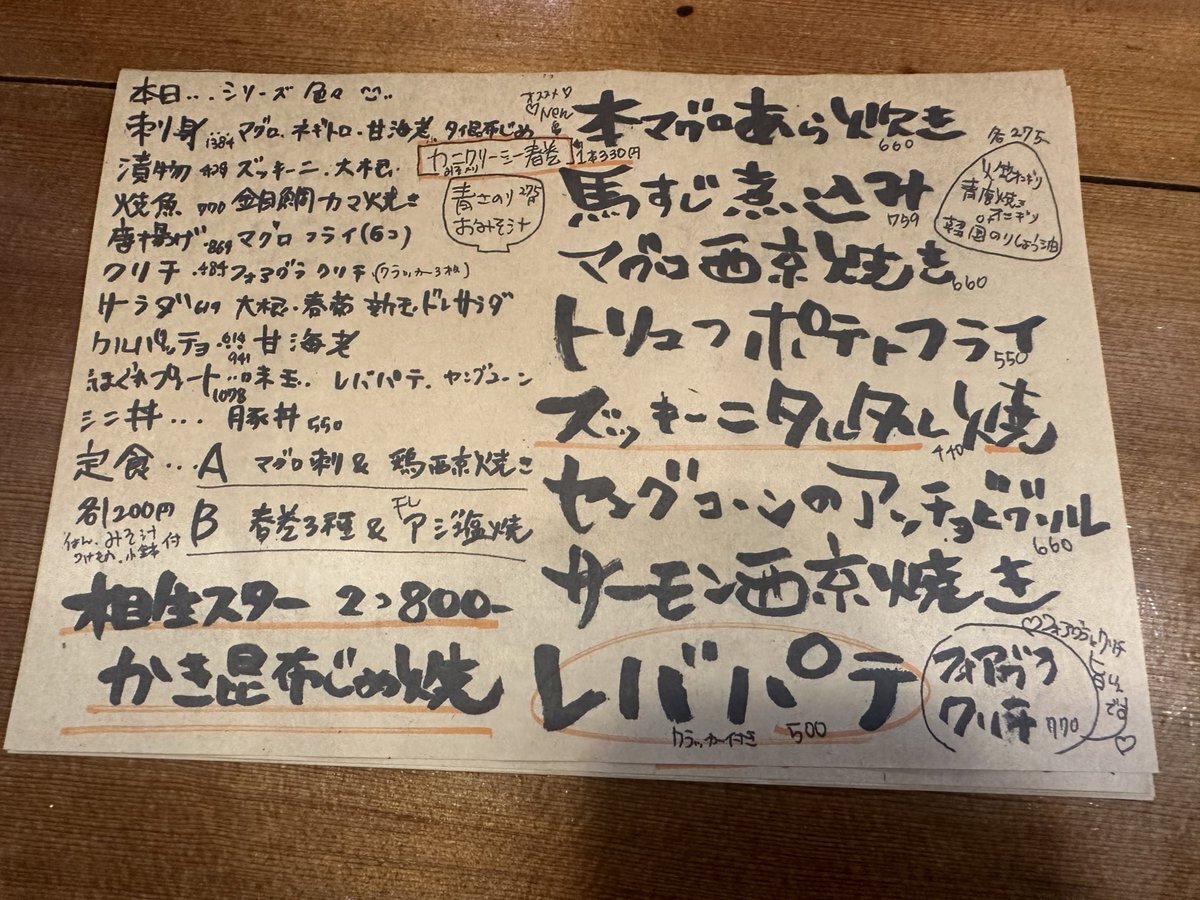 本日...シリーズ 色々
刺身 1384 マグロ、ネギトロ・甘海老 タイ昆布じめ
漬物 429 ズッキーニ・大根
焼魚 770 金目鯛カマ焼き
唐揚げ 869 マグロフライ(6コ)
クリチ 484 フォアグラクリチ(クラッカー3枚)
サーラダ 大根・春菊
カルパッチョ 甘海老
941
1078 味玉. レバパテ. ヤングコーン
ミニ丼... 豚丼 550
定食...A マグロ刺 & 鶏西京焼き
各1200円 B 春巻3種 & アジ塩焼
ごはん、みそ汁
つけもの、小鉢付
相生スター 2コ800-
かき昆布じめ焼
オススメ♡
♡New
カニクリーミー春巻 1本330円
みそ入り
青さのり 275
おみそ汁
本マグロあら炊き
660
馬すじ煮込み
759
マグロ西京焼き
660
トリュフポテトフライ
550
ズッキーニタルタル焼
440
ヤングコーンのアンチョビグリル
660
サーモン西京焼き
レバパテ
クラッカー付き 500
各275
韓国のりしょう油
フォアグラ
クリチ 770
です